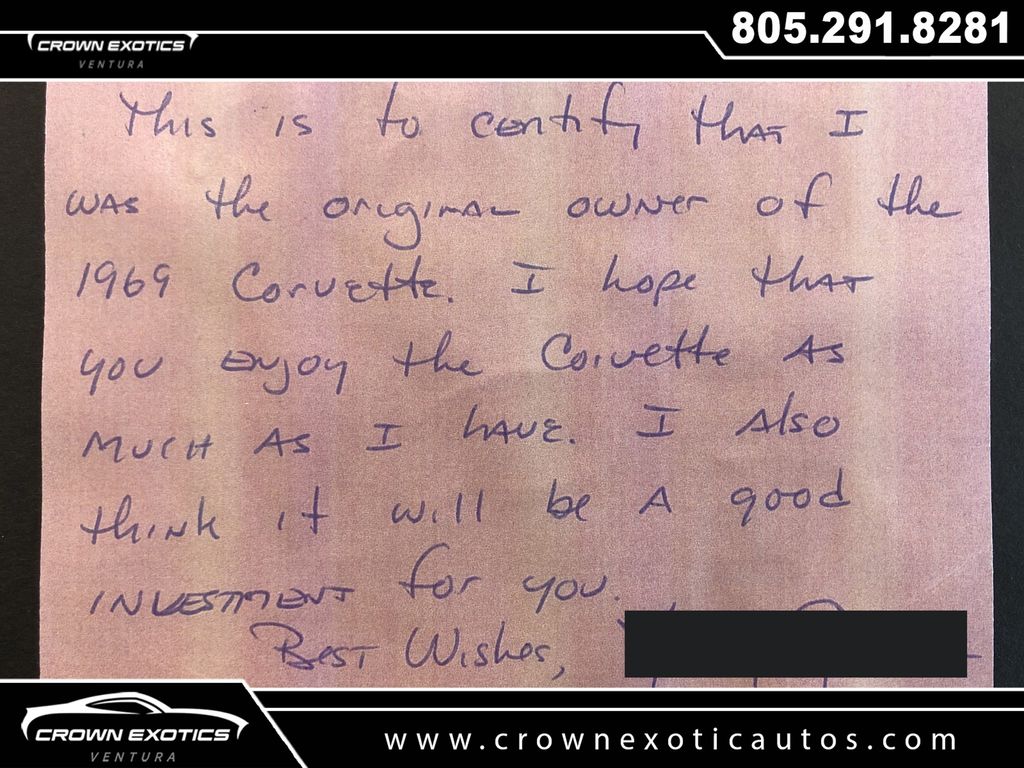 CROWN EXOTICS
VENTURA
805.291.8281
This is to certify that I
was the original owner of the
1969 Corvette. I hope that
you enjoy the Corvette as
much as I have. I also
think it will be a good
investment for you.
Best Wishes,
CROWN EXOTICS
VENTURA
www.crownexoticautos.com